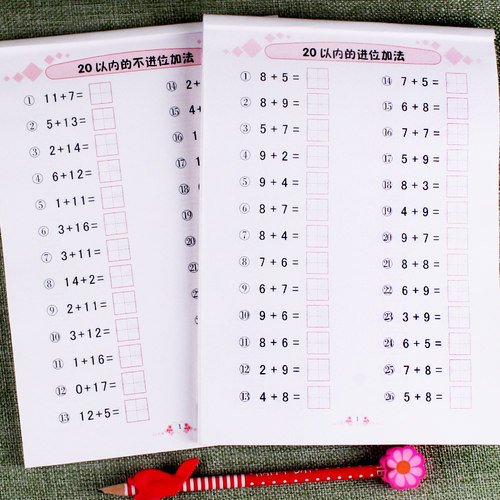 20以内的不进位加法
① 11+7=
② 5+13=
③ 2+14=
④ 6+12=
⑤ 1+11=
⑥ 3+16=
⑦ 3+11=
⑧ 14+2=
⑨ 2+11=
⑩ 3+12=
⑪ 1+16=
⑫ 0+17=
⑬ 12+5=
⑭ 2+
⑮ 4+
⑯ 1
⑰ 1
⑱ 0
⑲
⑳
㉑
㉒
1
20以内的进位加法
① 8+5=
② 8+9=
③ 5+7=
④ 9+2=
⑤ 9+4=
⑥ 8+7=
⑦ 8+4=
⑧ 7+6=
⑨ 7+6=
⑩ 9+6=
⑪ 8+6=
⑫ 2+9=
⑬ 4+8=
⑭ 7+5=
⑮ 6+8=
⑯ 7+7=
⑰ 5+9=
⑱ 8+3=
⑲ 4+9=
⑳ 9+7=
㉑ 8+8=
㉒ 6+9=
㉓ 3+9=
㉔ 6+5=
㉕ 7+8=
㉖ 5+8=
1